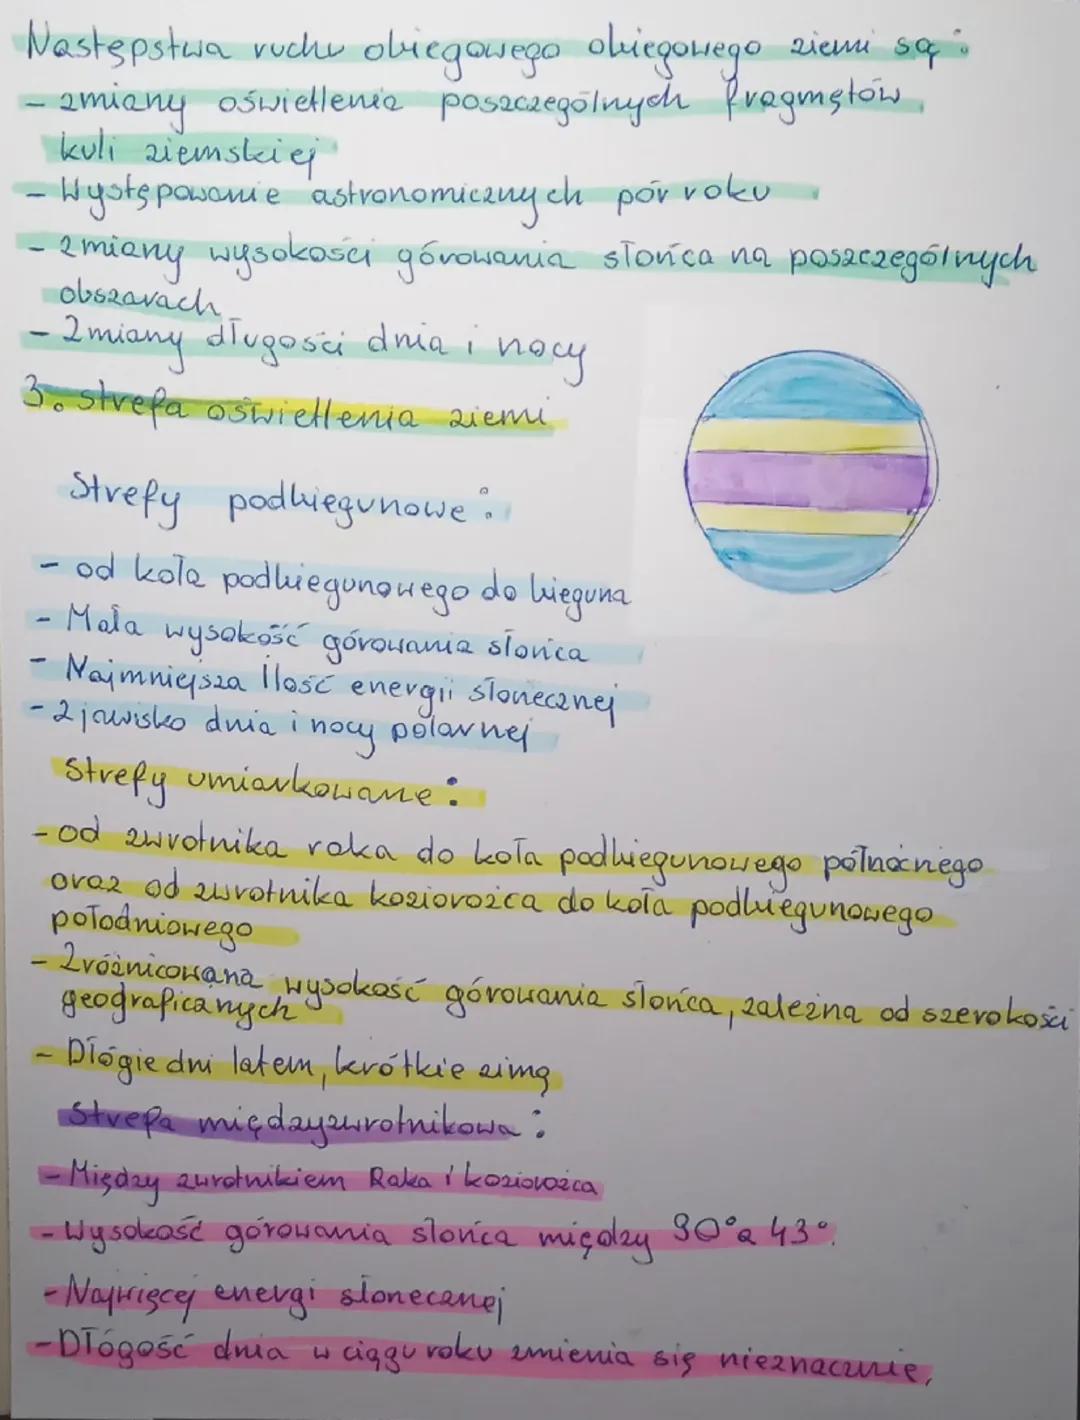 Następstwa ruchu obiegowego obiegowego ziemi są:
- zmiany oświetlenia poszczególnych fragmętów
kuli ziemskiej
- Występowanie astronomicznych pór roku
- zmiany wysokości górowania słońca na poszczególnych
obszarach
- Zmiany długości dnia i nocy
3. strefa oświetlenia ziemi
Strefy podbiegunowe:
- od koła podbiegunowego do bieguna
- Mała wysokość górowania słońca
- Najmniejsza Ilość energii słonecznej
- zjawisko dnia i nocy polarnej
Strefy umiarkowane:
- od zwrotnika raka do koła podbiegunowego północnego
oraz od zwrotnika koziorożca do koła podbiegunowego
połodniowego
- Zróżnicowana wysokość górowania słońca, zależna od szerokości
geograficznych
- Dłógie dni latem, krótkie zimą
Strefa międzyzwrotnikowa:
- Między zwrotnikiem Raka i koziorożca
- Wysokość górowania słońca między 90° a 43°.
- Najwięcej energi słonecznej
- Dłógość dnia w ciągu roku zmienia się nieznacznie,